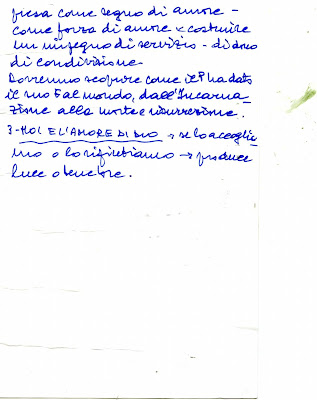 presa come segno di amore -
come forza di amore x costruire
un impegno di servizio - di dono
di condivisione -
Dovremo scoprire come il P ha dato
il suo F al mondo, dall'Incarna-
zione alla morte e risurrezione.
3 - NOI E L'AMORE DI DIO → se lo accoglia
mo o lo rifiutiamo → produce
luce o tenebre.